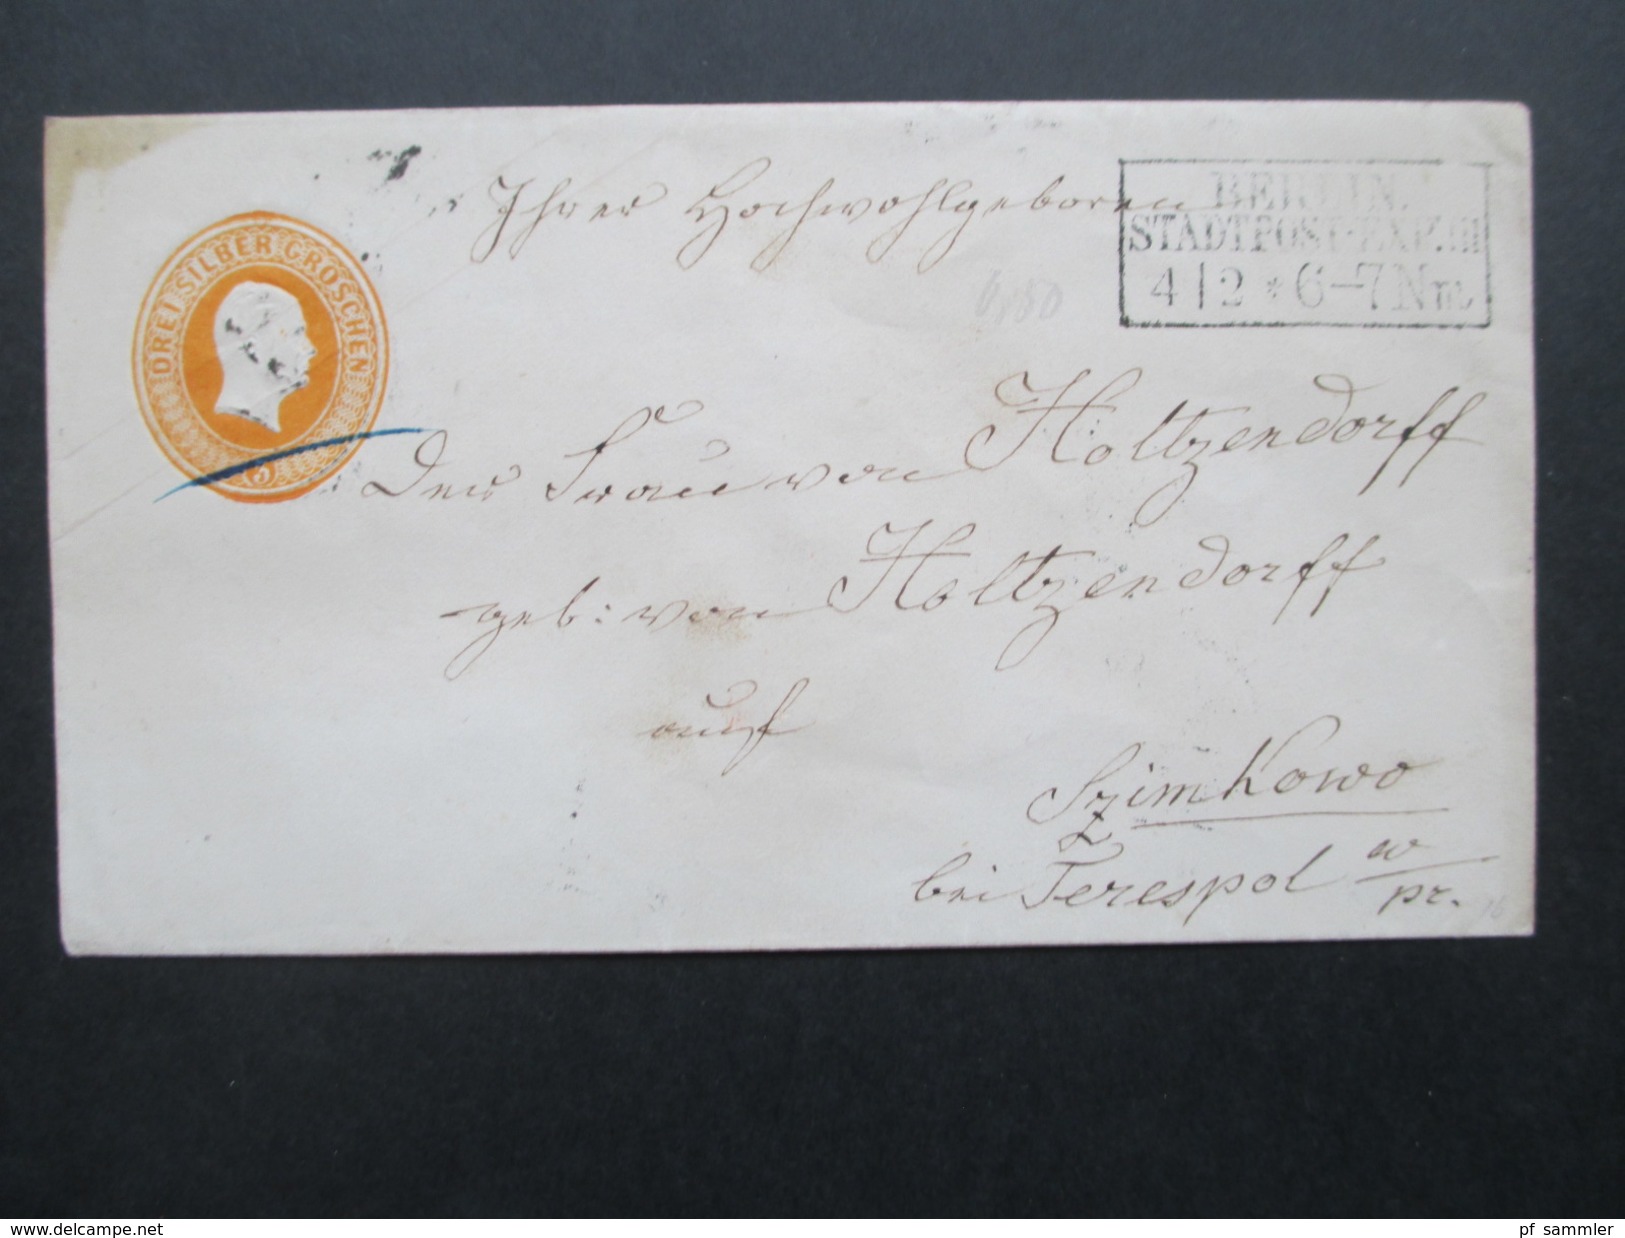 DREI SILBER GROSCHEN
3
Ihrer Hochwohlgeboren
BERLIN.
STADTPOST-EXP. III
4 | 2 * 6-7 Nm.
Der Frau von Holtzendorff
geb: von Holtzendorff
auf
Szimkowo
bei Terespol w/pr.
www.delcampe.net
pf_sammler